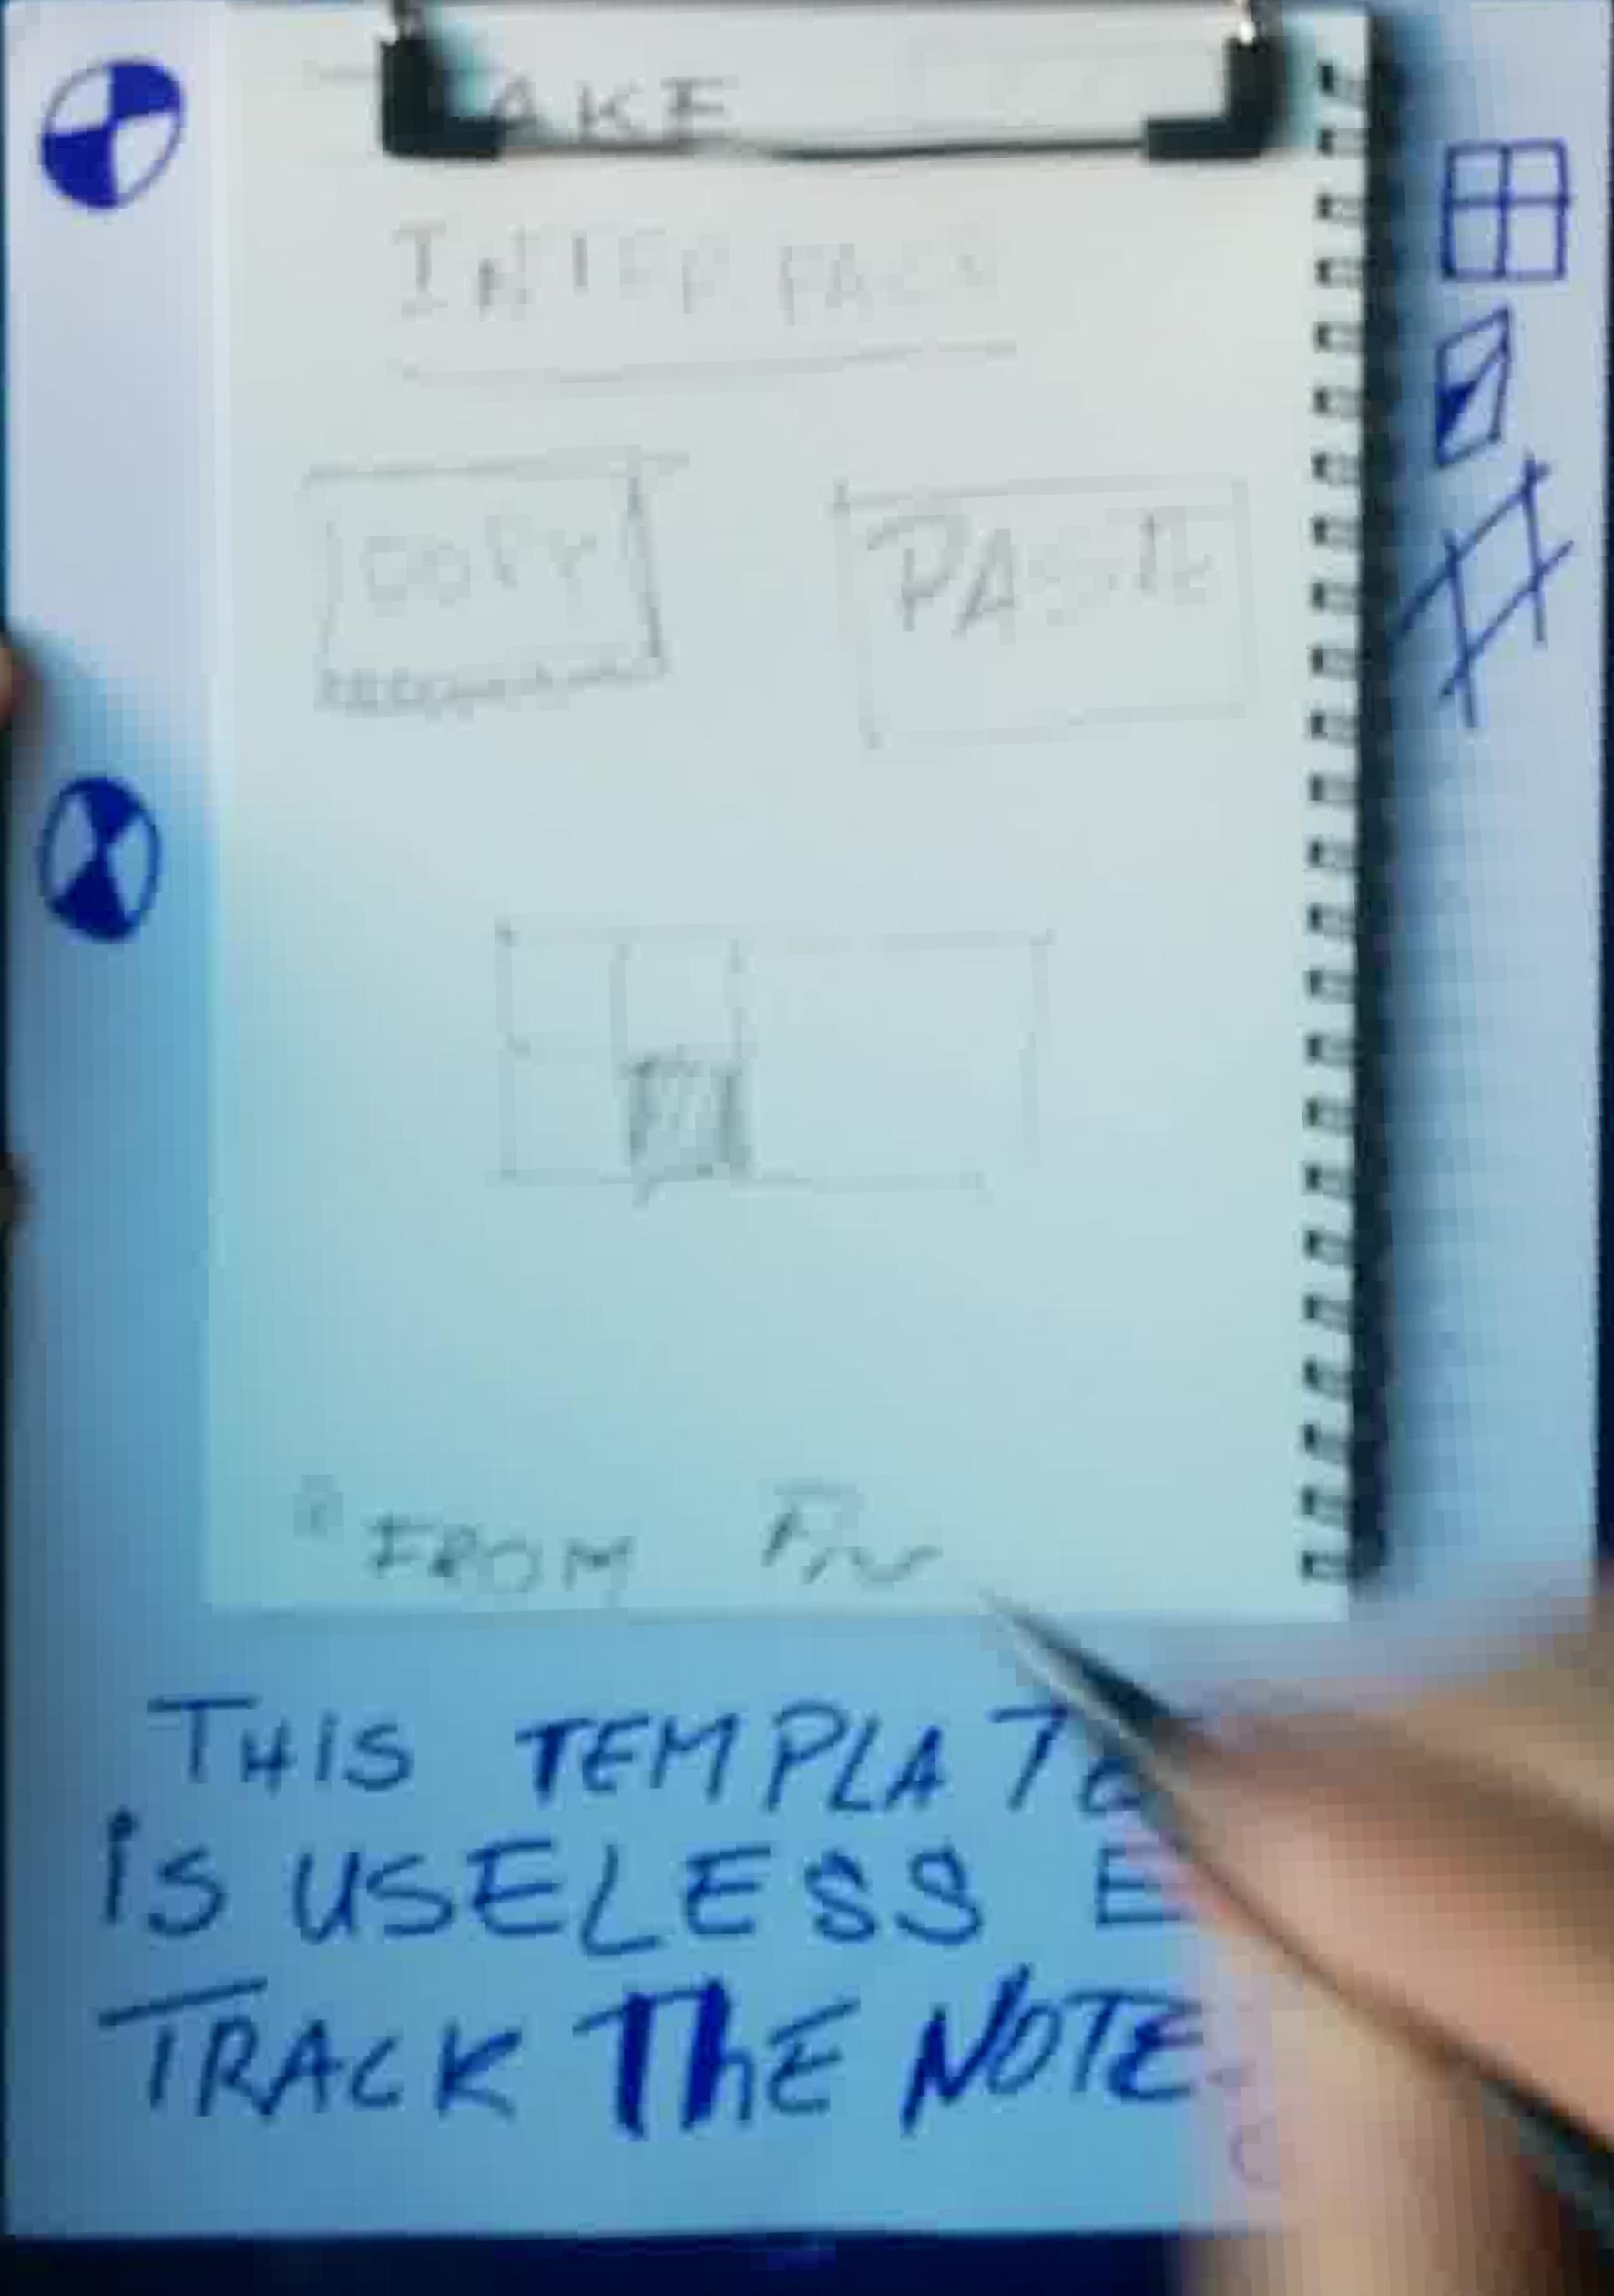 AKE
INTERFACE
COPY
PASTE
FROM
THIS TEMPLATE
is USELESS E
TRACK ThE NOTE.